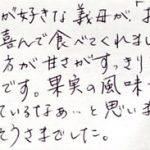 が好きな義母が、「お
喜んで食べてくれまし
方が甘さがすっきり
です。果実の風味
ているなぁ…と思いま
そうさまでした。